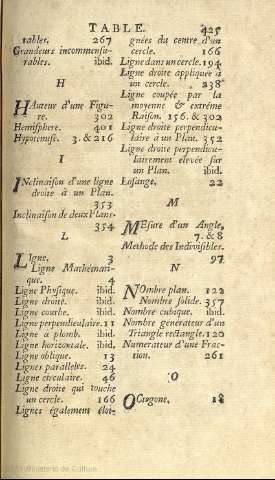 TABLE. 425
rables. 267
Grandeurs incommensu-
rables. ibid.
H
HAuteur d'une Figu-
re. 302
Hemisphere. 401
Hypotenuse. 3. & 216
I
INclinaison d'une ligne
droite à un Plan.
353
Inclinaison de deux Plans.
354
L
LIgne. 3
Ligne Mathémati-
que. 4
Ligne Physique. ibid.
Ligne droite. ibid.
Ligne courbe. ibid.
Ligne perpendiculaire. 11
Ligne à plomb. ibid.
Ligne horizontale. ibid.
Ligne oblique. 13
Lignes paralleles. 24
Ligne circulaire. 46
Ligne droite qui touche
un cercle. 166
Lignes également éloi-
gnées du centre d'un
cercle. 166
Ligne dans un cercle. 194
Ligne droite appliquée à
un cercle. 238
Ligne coupée par la
moyenne & extréme
Raison. 156. & 302
Ligne droite perpendicu-
laire à un Plan. 352
Ligne droite perpendicu-
lairement elevée sur
un Plan. ibid.
Losange. 22
M
MEsure d'un Angle,
7. & 8
Methode des Indivisibles.
97
N
NOmbre plan. 122
Nombre solide. 357
Nombre cubique. ibid.
Nombre générateur d'un
Triangle rectangle. 120
Numerateur d'une Frac-
tion. 261
O
OCtogone. 18
Ministerio de Cultura